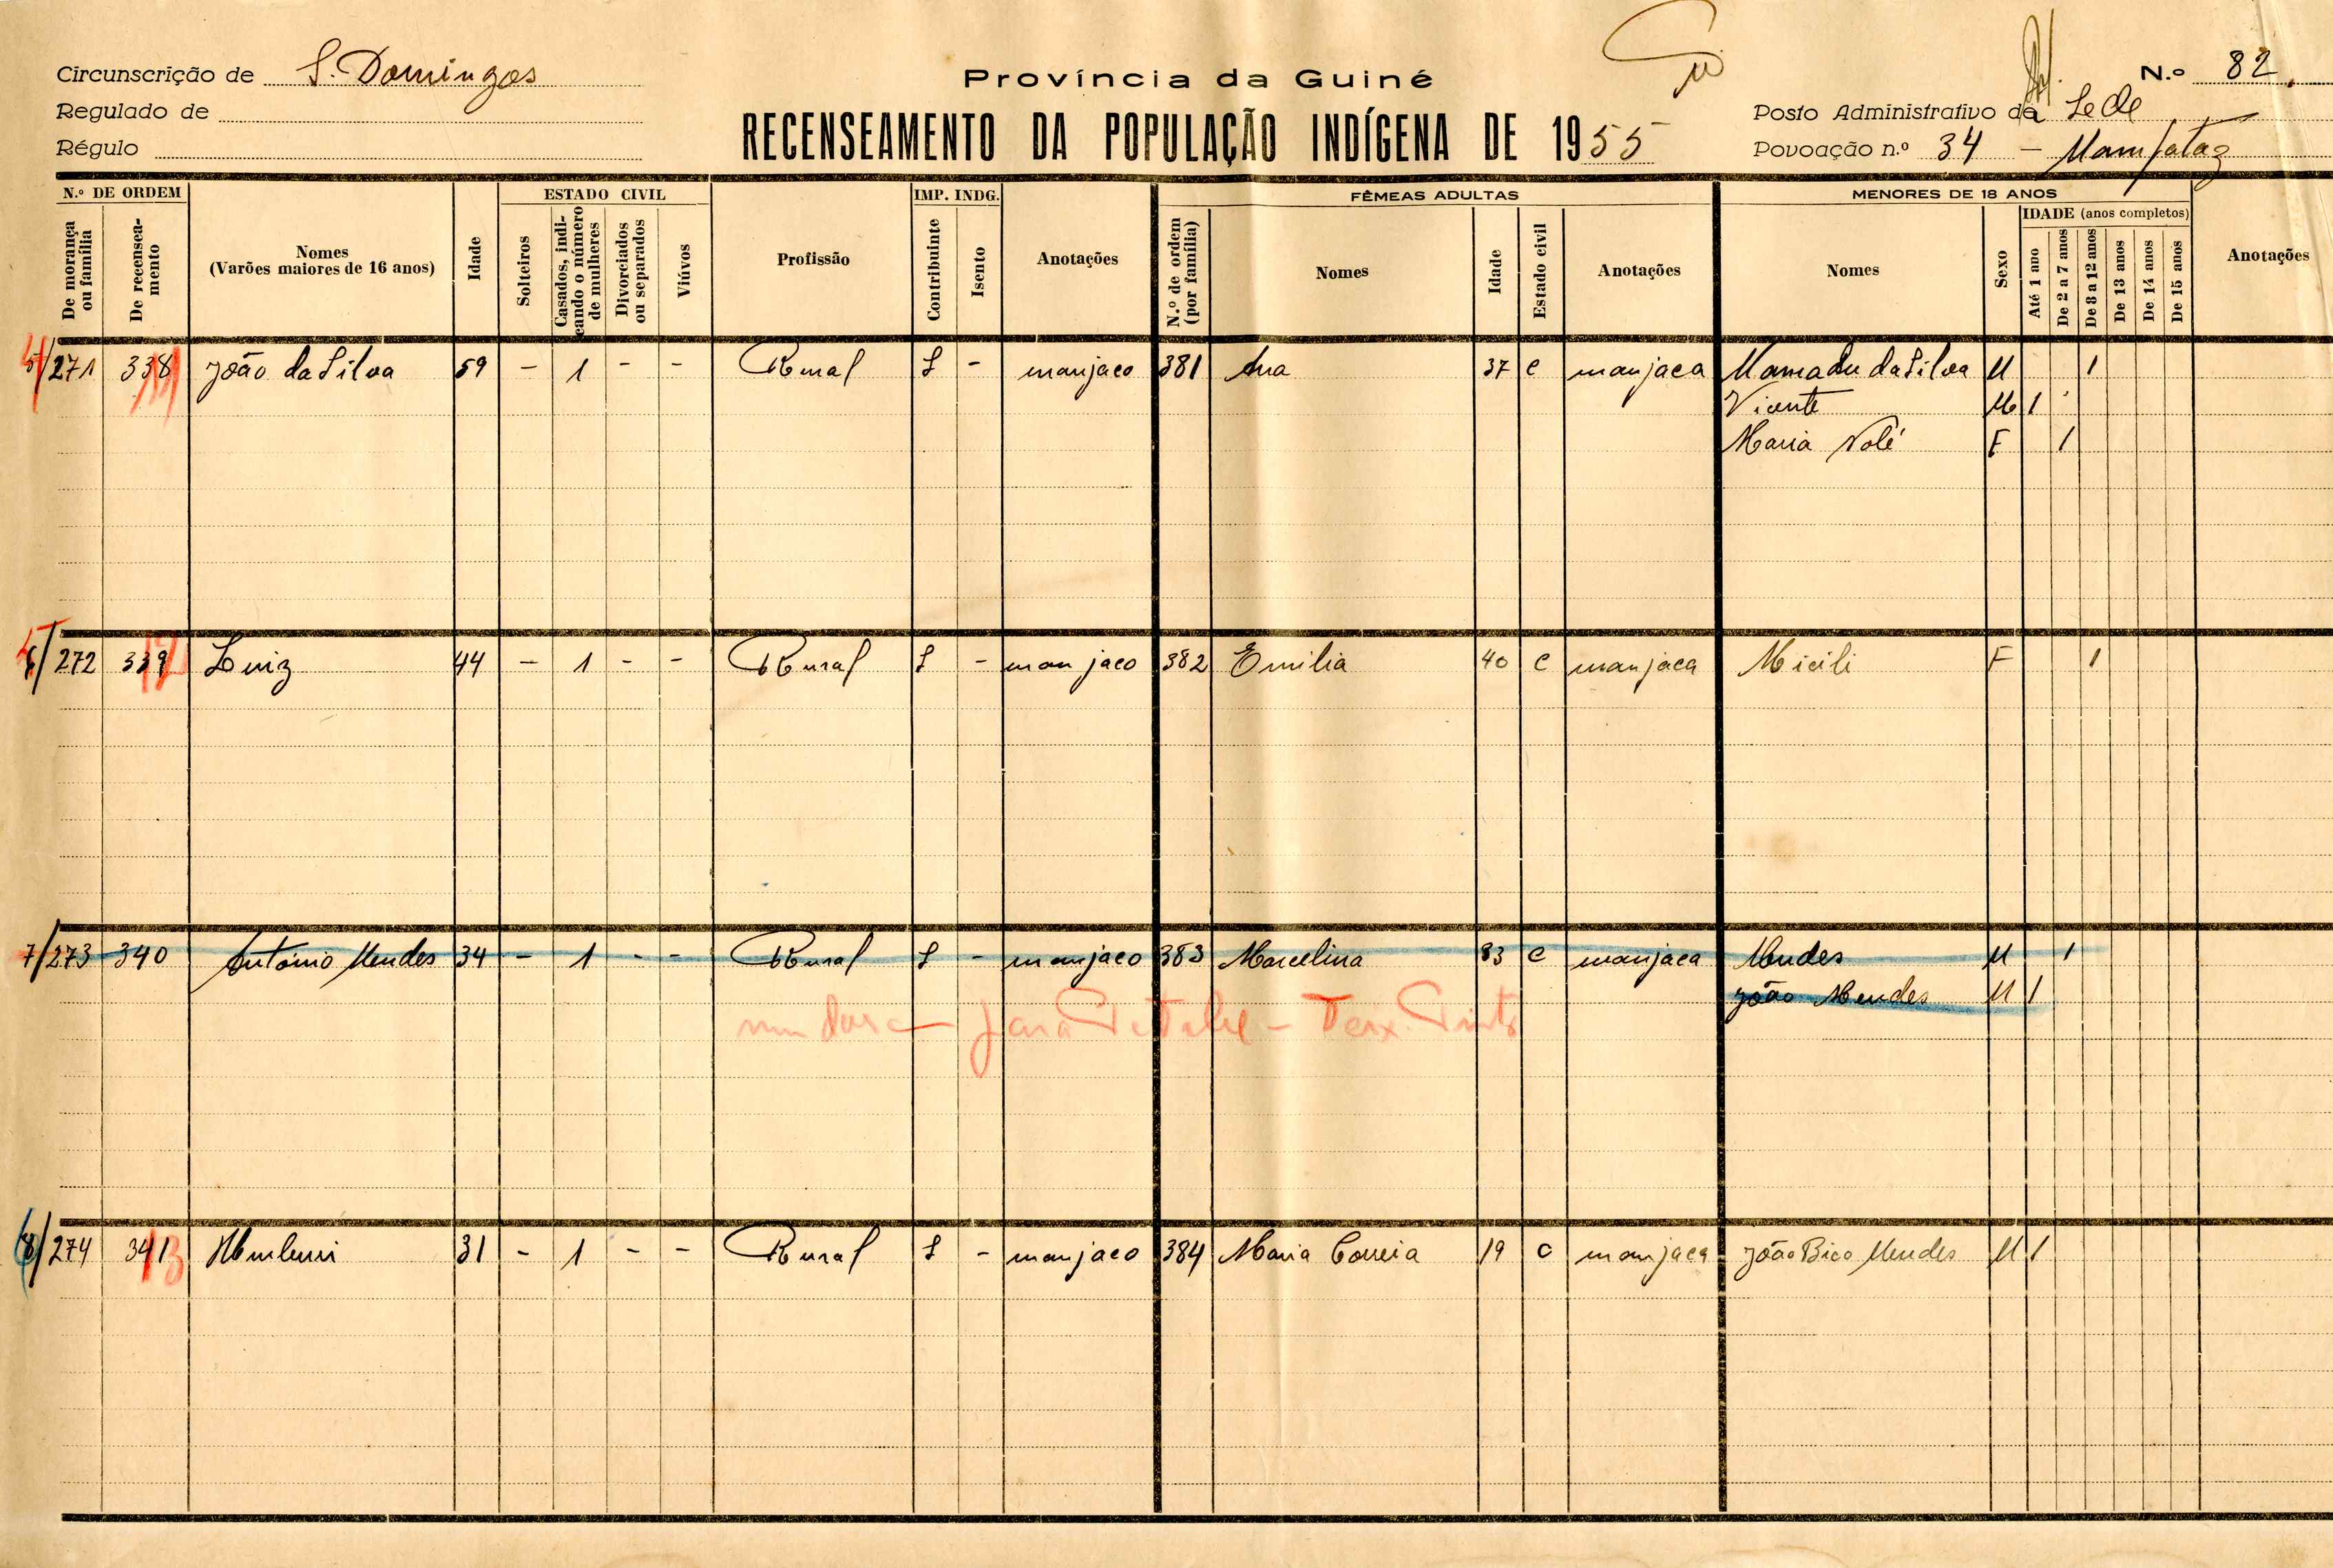 Circunscrição de S. Domingos
Regulado de
Régulo
Província da Guiné
RECENSEAMENTO DA POPULAÇÃO INDÍGENA DE 1955
N.º 82
Posto Administrativo da Sede
Povoação n.º 34 -
N.º DE ORDEM
De morança ou família
De recenseamento
Nomes
(Varões maiores de 16 anos)
Idade
ESTADO CIVIL
Solteiros
Casados, indicando o número de mulheres
Divorciados ou separados
Viúvos
Profissão
IMP. INDG.
Contribuinte
Isento
Anotações
FÊMEAS ADULTAS
N.º de ordem (por família)
Nomes
Idade
Estado civil
Anotações
MENORES DE 18 ANOS
Nomes
Sexo
IDADE (anos completos)
Até 1 ano
De 2 a 7 anos
De 8 a 12 anos
De 13 anos
De 14 anos
De 15 anos
Anotações
5/271 338 João da Silva 59 - 1 - - Rural S - manjaco 381 Ana 37 C manjaca Mamadu da Silva M 1
Vicente M 1
Maria F 1
6/272 339 Luiz 44 - 1 - - Rural S - manjaco 382 Emilia 40 C manjaca F 1
7/273 340 António Mendes 34 - 1 - - Rural S - manjaco 383 Marcelina 33 C manjaca Mendes M 1
João Mendes M 1
para - Teix. Pinto
8/274 341 31 - 1 - - Rural S - manjaco 384 Maria Correia 19 C manjaca João Bico Mendes M 1